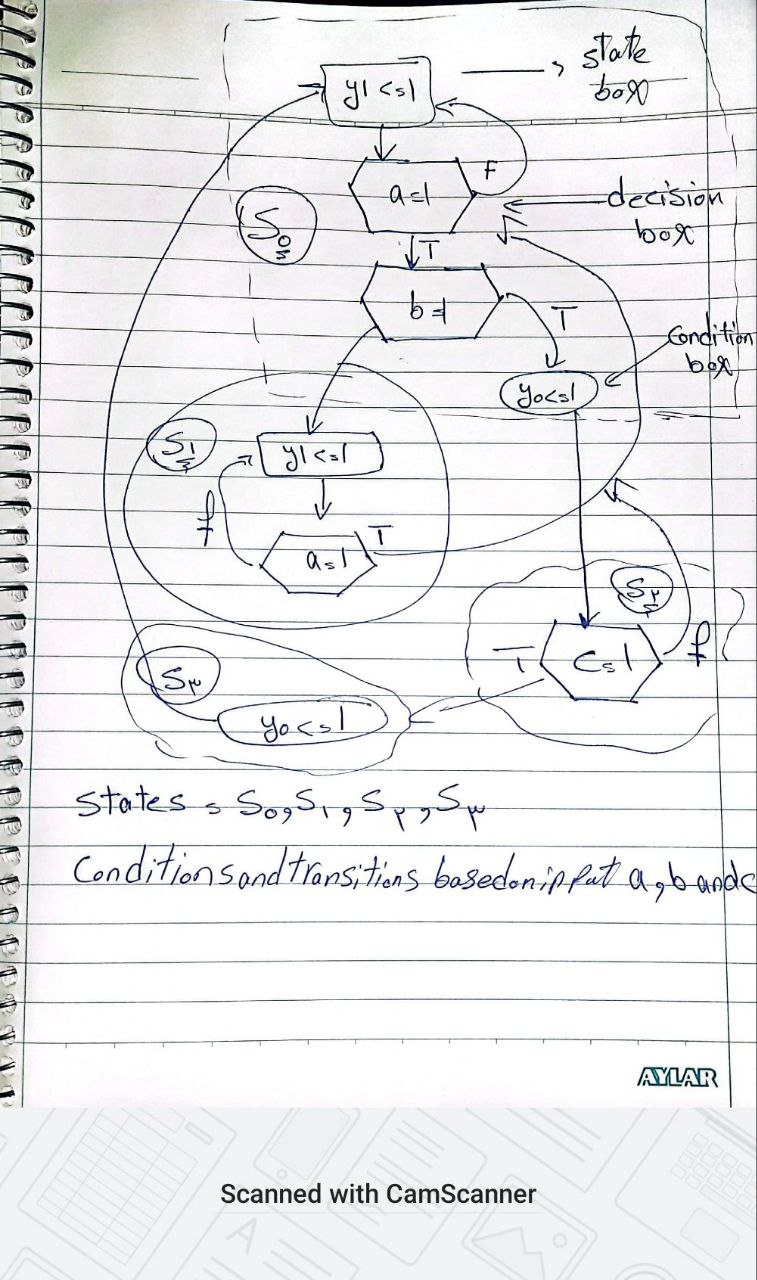 state
box
y1<=1
F
a=1
decision
box
S0
T
b=1
T
Condition
box
y0<=1
S1
y1<=1
f
a=1
T
S۲
C=1
T
f
S۳
y0<=1
States = S0, S1, S۲, S۳
Conditions and transitions based on input a, b and c
AYLAR
Scanned with CamScanner